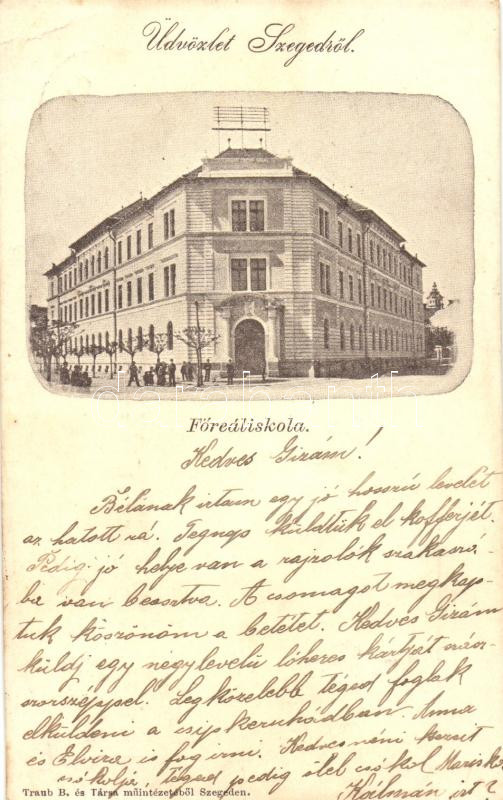 Üdvözlet Szegedről.
Főreáliskola.
Kedves Gizám!
Bélának irtam egy jó hosszú levelet
az hatott rá. Tegnap küldtük el kofferját
Pedig jó helye van a rajzolók szakaszá-
ba van beosztva. A csomagot megkap-
tuk köszönöm a betétet. Kedves Gizám
küldj egy négylevelü lóheres kártját
Legközelebb téged foglak
elküldeni a ruhádban. Anna
és Elvira is fog irni. Kedves néni kezeit
csókolja, téged pedig ölel csókol Mariska
Kálmán
Traub B. és Társa műintézetéből Szegeden.